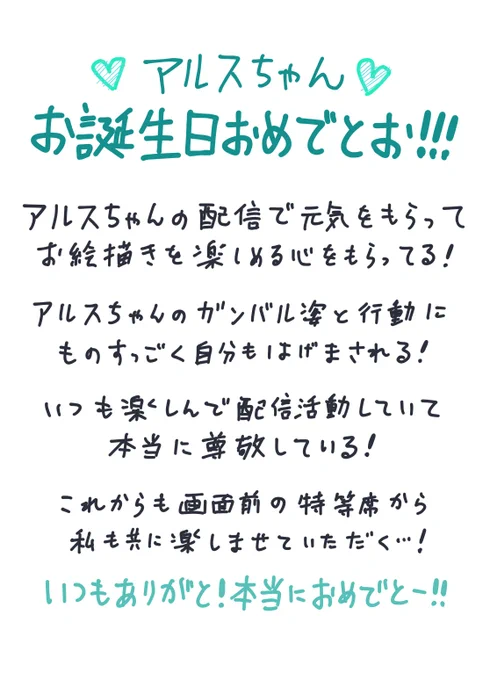 アルスちゃん
お誕生日おめでとお!!!
アルスちゃんの配信で元気をもらって
お絵描きを楽しめる心をもらってる!
アルスちゃんのガンバル姿と行動に
ものすっごく自分もはげまされる!
いつも楽しんで配信活動していて
本当に尊敬している!
これからも画面前の特等席から
私も共に楽しませていただく…!
いつもありがと!本当におめでとー!!